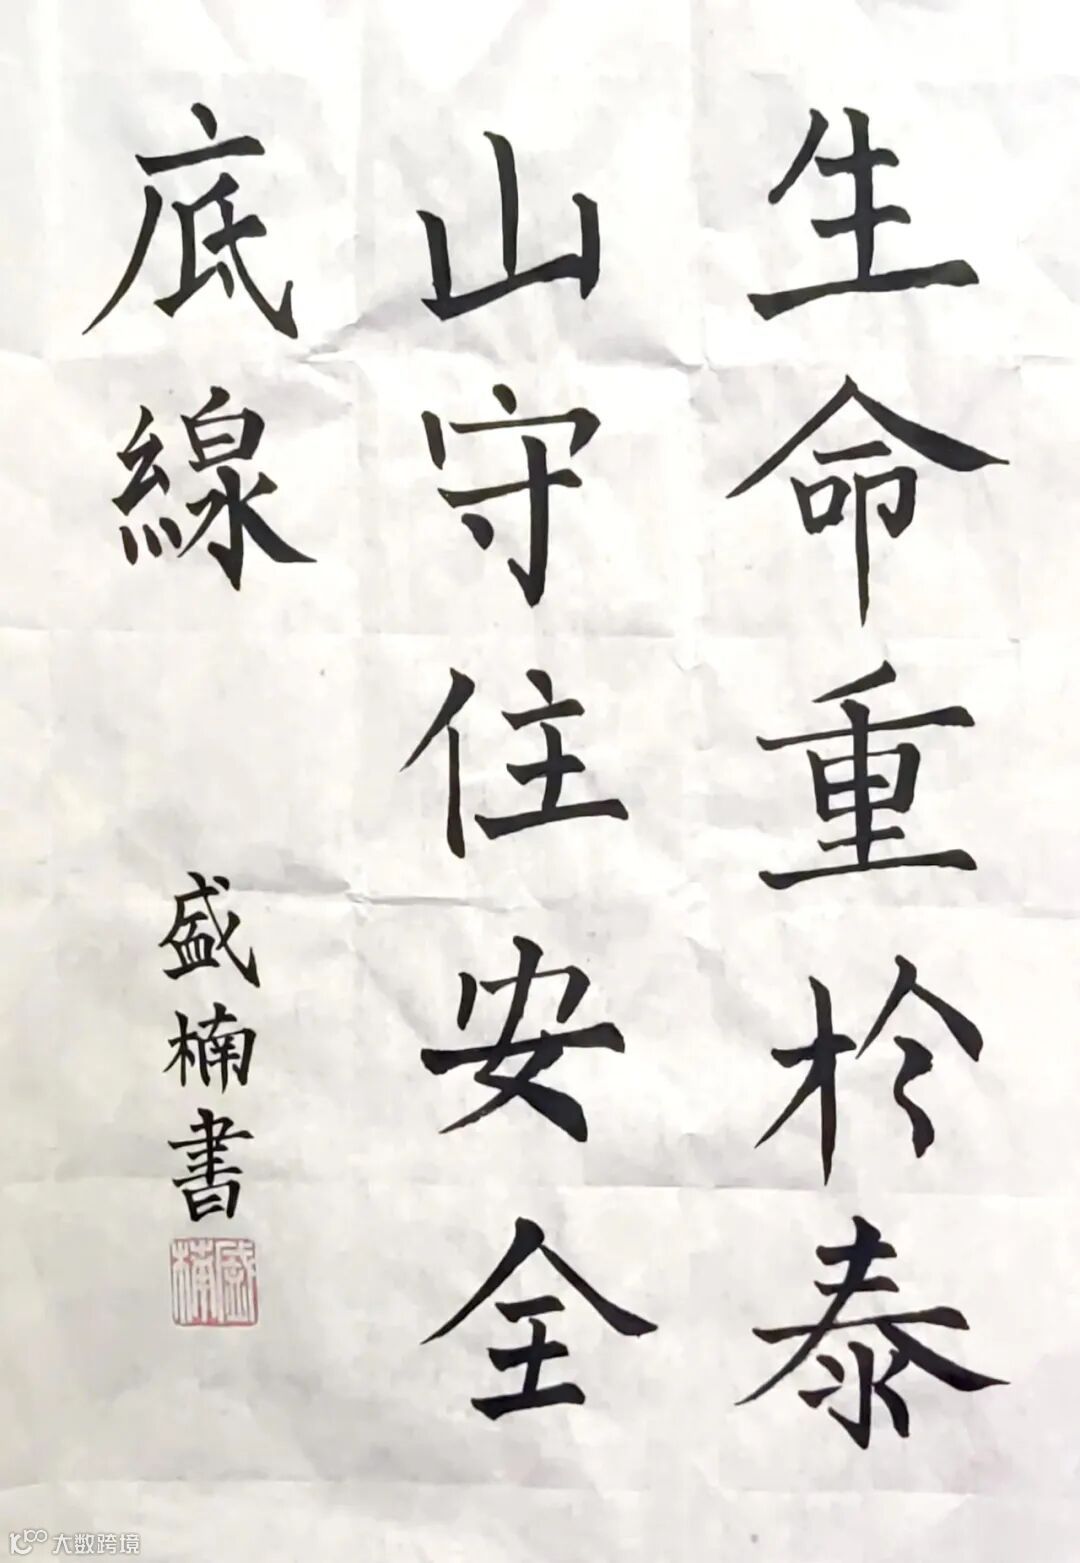 生命重於泰
山守住安全
底線
盛楠書
盛楠
大数跨境